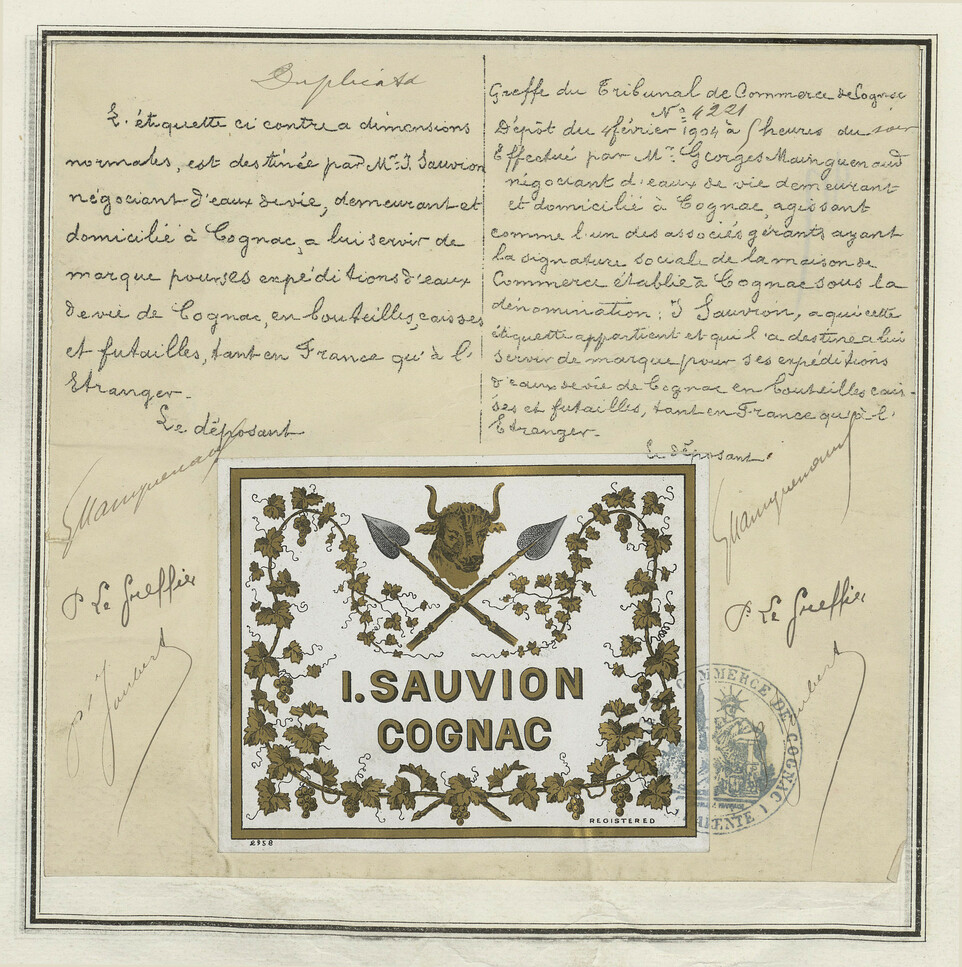 Duplicata
L'étiquette ci contre a dimensions
normales, est destinée par Mr. I. Sauvion
négociant d'eaux de vie, demeurant et
domicilié à Cognac, a lui servir de
marque pour ses expéditions d'eaux
de vie de Cognac, en bouteilles, caisses
et futailles, tant en France qu'à l'
Etranger.
Le déposant
GMainguenaud
Pr Le Greffier
Joubert
Greffe du Tribunal de Commerce de Cognac
No. 4221
Dépôt du 4 février 1904 à 5 heures du soir
Effectué par Mr. Georges Mainguenaud
négociant d'eaux de vie demeurant
et domicilié à Cognac, agissant
comme l'un des associés gérants, ayant
la signature sociale de la maison de
Commerce établie à Cognac sous la
dénomination: I Sauvion, a qui cette
étiquette appartient et qui l'a destine a lui
servir de marque pour ses expéditions
d'eaux de vie de Cognac en bouteilles cais-
ses et futailles, tant en France qu'à l'
Etranger.
Le déposant
GMainguenaud
Pr Le Greffier
I. SAUVION
COGNAC
REGISTERED
2958
COMMERCE DE COGNAC